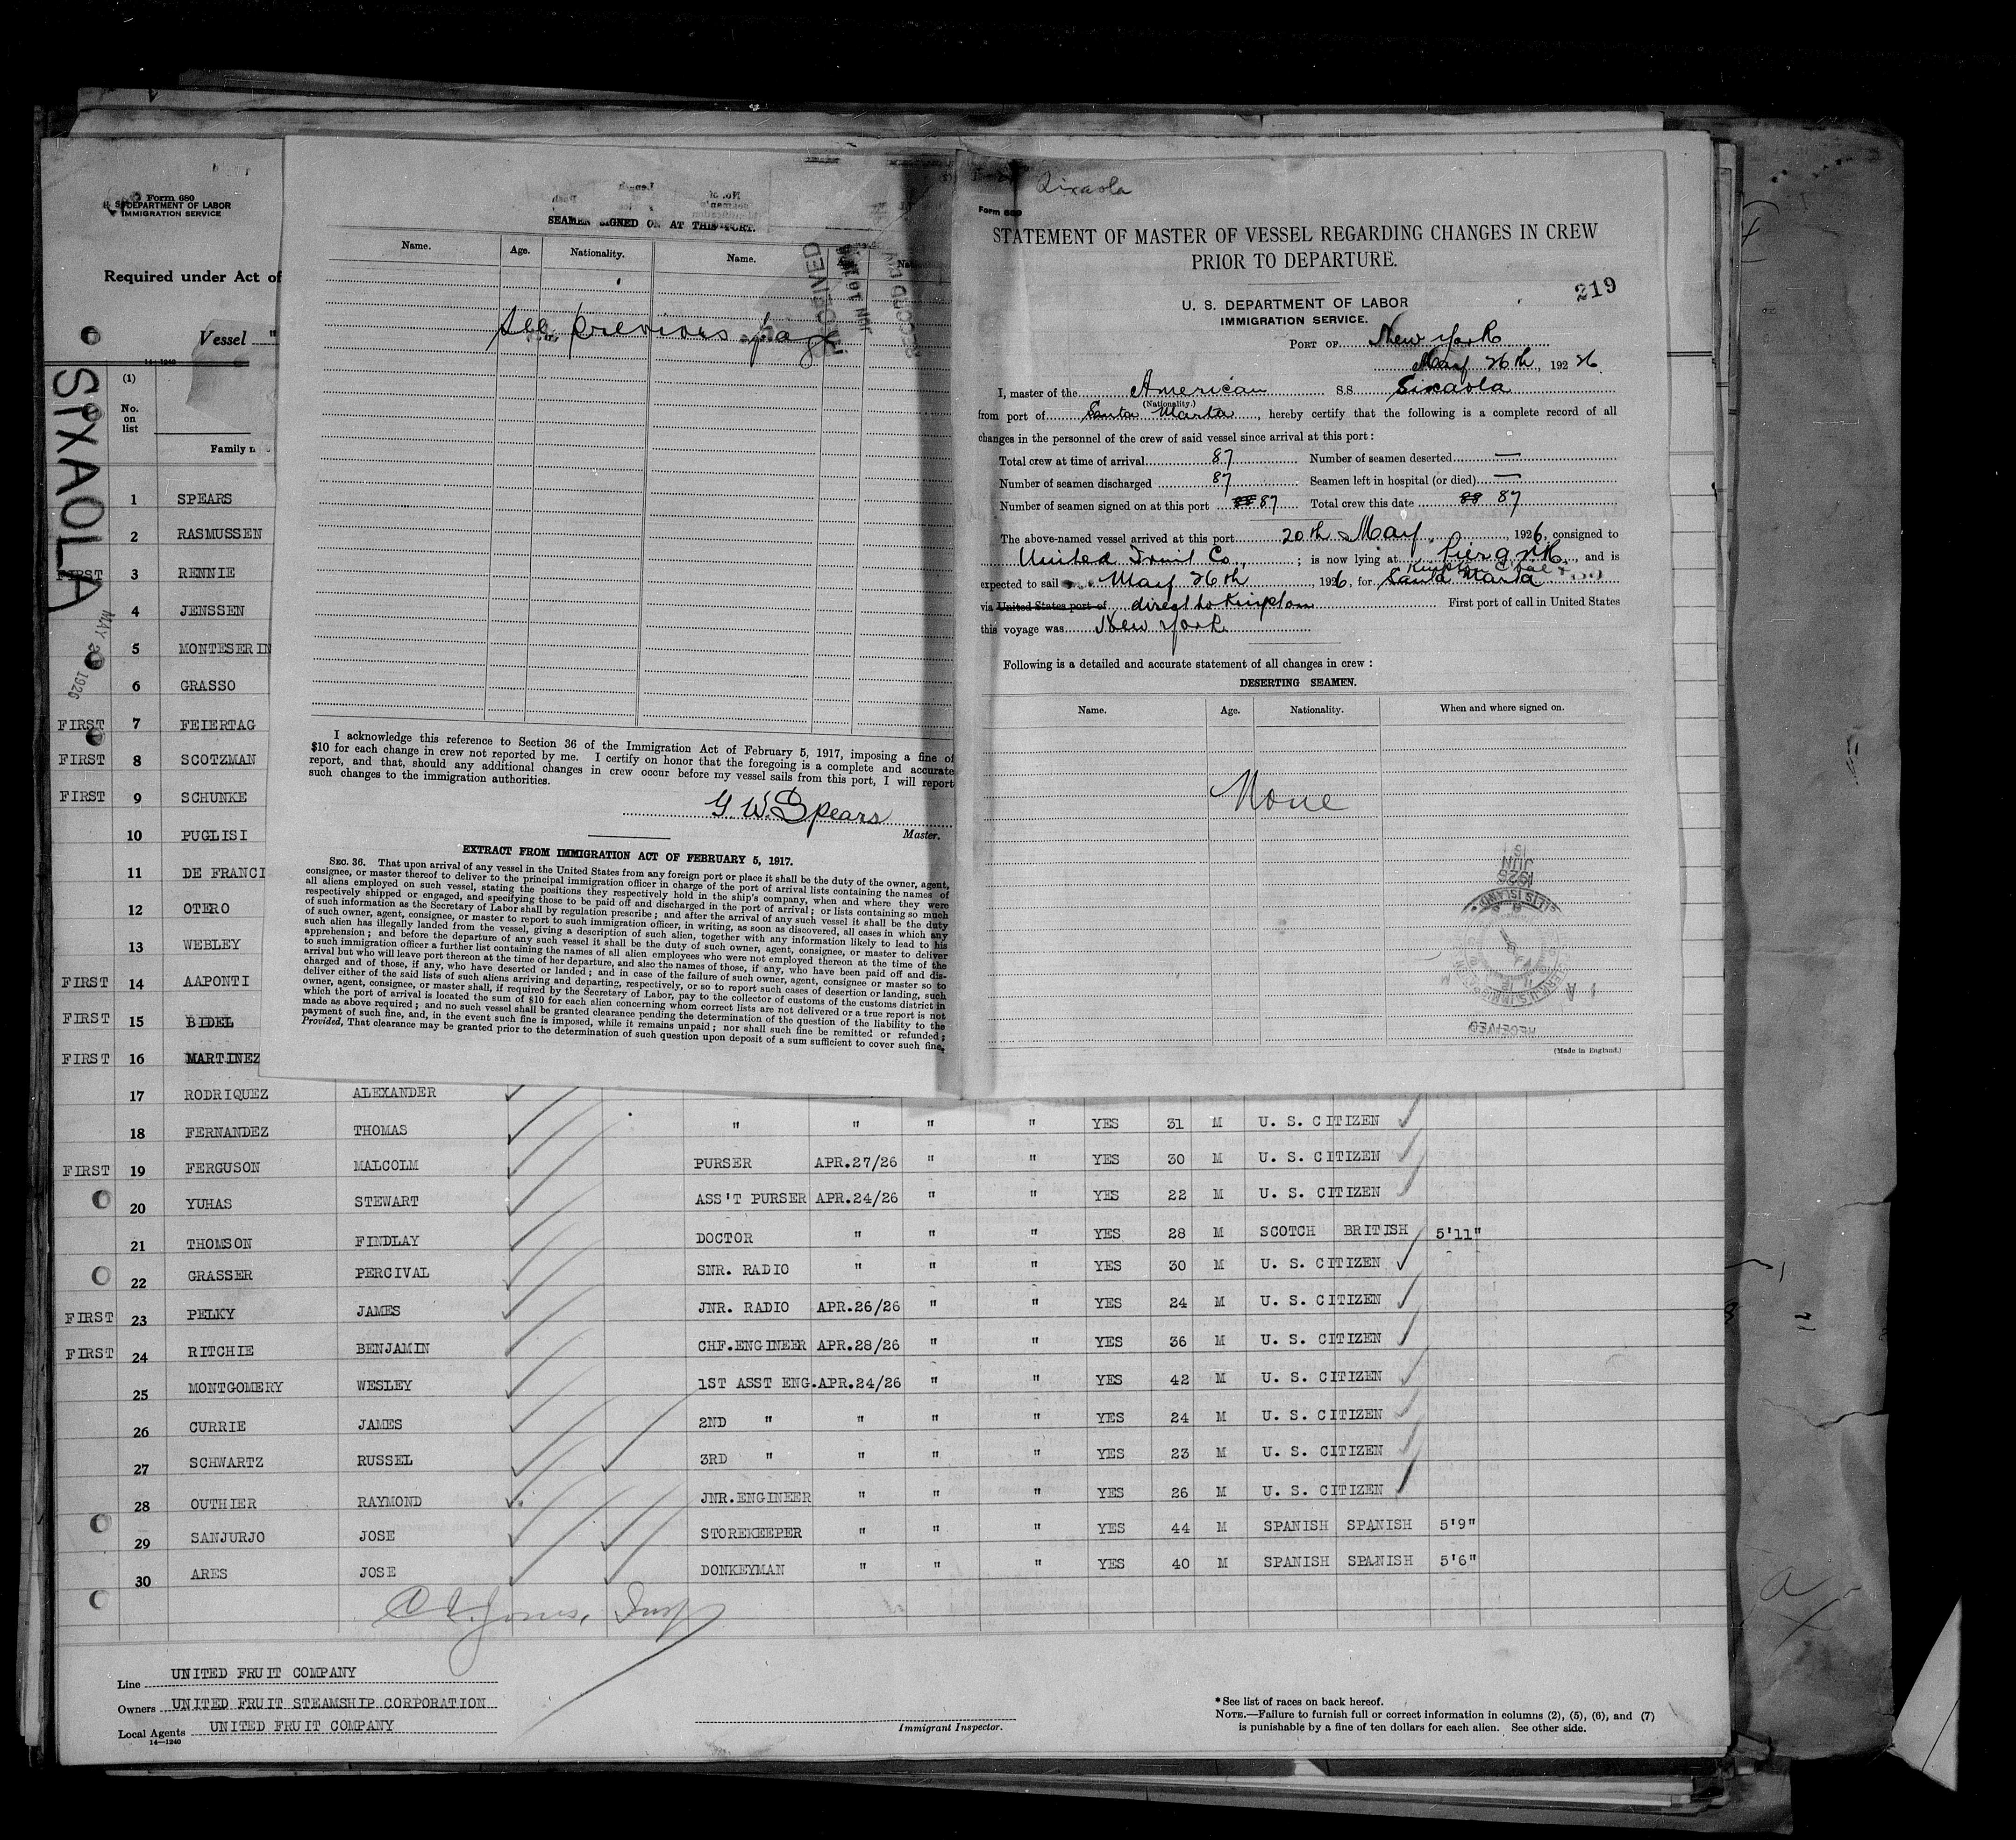 Form 680
U. S. DEPARTMENT OF LABOR
IMMIGRATION SERVICE
Required under Act of
Vessel "
14-1240
SIXAOLA
(1)
No.
on
list
Family n
1 SPEARS
2 RASMUSSEN
FIRST 3 RENNIE
4 JENSSEN
5 MONTESERIN
6 GRASSO
FIRST 7 FEIERTAG
FIRST 8 SCOTZMAN
FIRST 9 SCHUNKE
10 PUGLISI
11 DE FRANCI
12 OTERO
13 WEBLEY
FIRST 14 AAPONTI
FIRST 15 BIDEL
FIRST 16 MARTINEZ
SEAMEN SIGNED ON AT THIS PORT.
Name. Age. Nationality. Name.
RECEIVED
see previous page
I acknowledge this reference to Section 36 of the Immigration Act of February 5, 1917, imposing a fine of
$10 for each change in crew not reported by me. I certify on honor that the foregoing is a complete and accurate
report, and that, should any additional changes in crew occur before my vessel sails from this port, I will report
such changes to the immigration authorities.
G. W. Spears
Master.
EXTRACT FROM IMMIGRATION ACT OF FEBRUARY 5, 1917.
SEC. 36. That upon arrival of any vessel in the United States from any foreign port or place it shall be the duty of the owner, agent,
consignee, or master thereof to deliver to the principal immigration officer in charge of the port of arrival lists containing the names of
all aliens employed on such vessel, stating the positions they respectively hold in the ship's company, when and where they were
respectively shipped or engaged, and specifying those to be paid off and discharged in the port of arrival; or lists containing so much
of such information as the Secretary of Labor shall by regulation prescribe; and after the arrival of any such vessel it shall be the duty
of such owner, agent, consignee, or master to report to such immigration officer, in writing, as soon as discovered, all cases in which any
such alien has illegally landed from the vessel, giving a description of such alien, together with any information likely to lead to his
apprehension; and before the departure of any such vessel it shall be the duty of such owner, agent, consignee, or master to deliver
to such immigration officer a further list containing the names of all alien employees who were not employed thereon at the time of the
arrival but who will leave port thereon at the time of her departure, and also the names of those, if any, who have been paid off and dis-
charged and of those, if any, who have deserted or landed; and in case of the failure of such owner, agent, consignee or master so to
deliver either of the said lists of such aliens arriving and departing, respectively, or so to report such cases of desertion or landing, such
owner, agent, consignee, or master shall, if required by the Secretary of Labor, pay to the collector of customs of the customs district in
which the port of arrival is located the sum of $10 for each alien concerning whom correct lists are not delivered or a true report is not
made as above required; and no such vessel shall be granted clearance pending the determination of the question of the liability to the
payment of such fine, and, in the event such fine is imposed, while it remains unpaid; nor shall such fine be remitted or refunded:
Provided, That clearance may be granted prior to the determination of such question upon deposit of a sum sufficient to cover such fine.
Sixaola
Form 689
STATEMENT OF MASTER OF VESSEL REGARDING CHANGES IN CREW
PRIOR TO DEPARTURE.
219
U. S. DEPARTMENT OF LABOR
IMMIGRATION SERVICE.
PORT OF New York
May 26th, 1926
I, master of the American S.S. Sixaola
(Nationality.)
from port of Santa Marta, hereby certify that the following is a complete record of all
changes in the personnel of the crew of said vessel since arrival at this port:
Total crew at time of arrival 87 Number of seamen deserted —
Number of seamen discharged 87 Seamen left in hospital (or died) —
Number of seamen signed on at this port 88 87 Total crew this date 88 87
The above-named vessel arrived at this port 20th May, 1926, consigned to
United Fruit Co.; is now lying at Pier 9 NR, and is
expected to sail May 26th, 1926, for Santa Marta
via United States port of direct to Kingston First port of call in United States
this voyage was New York
Following is a detailed and accurate statement of all changes in crew:
DESERTING SEAMEN.
Name. Age. Nationality. When and where signed on.
None
JUN
1926
RECEIVED
(Made in England.)
17 RODRIQUEZ ALEXANDER
18 FERNANDEZ THOMAS " " " " YES 31 M U. S. CITIZEN
FIRST 19 FERGUSON MALCOLM PURSER APR.27/26 " " YES 30 M U. S. CITIZEN
20 YUHAS STEWART ASS'T PURSER APR.24/26 " " YES 22 M U. S. CITIZEN
21 THOMSON FINDLAY DOCTOR " " " YES 28 M SCOTCH BRITISH 5'11"
22 GRASSER PERCIVAL SNR. RADIO " " " YES 30 M U. S. CITIZEN
FIRST 23 PELKY JAMES JNR. RADIO APR.26/26 " " YES 24 M U. S. CITIZEN
FIRST 24 RITCHIE BENJAMIN CHF.ENGINEER APR.28/26 " " YES 36 M U. S. CITIZEN
25 MONTGOMERY WESLEY 1ST ASST ENG.APR.24/26 " " YES 42 M U. S. CITIZEN
26 CURRIE JAMES 2ND " " " " YES 24 M U. S. CITIZEN
27 SCHWARTZ RUSSEL 3RD " " " " YES 23 M U. S. CITIZEN
28 OUTHIER RAYMOND JNR.ENGINEER " " " YES 26 M U. S. CITIZEN
29 SANJURJO JOSE STOREKEEPER " " " YES 44 M SPANISH SPANISH 5'9"
30 ARES JOSE DONKEYMAN " " " YES 40 M SPANISH SPANISH 5'6"
Line UNITED FRUIT COMPANY
Owners UNITED FRUIT STEAMSHIP CORPORATION
Local Agents UNITED FRUIT COMPANY
14-1240
Immigrant Inspector.
* See list of races on back hereof.
NOTE.—Failure to furnish full or correct information in columns (2), (5), (6), and (7)
is punishable by a fine of ten dollars for each alien. See other side.